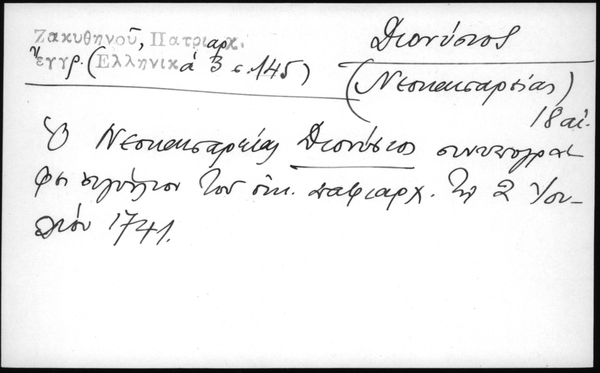 Ζακυθηνοῦ, Πατριαρχ.
ἔγγρ. (Ἑλληνικά 3 σ. 145)
Διονύσιος
(Νεοκαισαρείας)
18 αἰ.
Ὁ Νεοκαισαρείας Διονύσιος συνυπογρά-
φει σιγίλλιον τοῦ οἰκ. πατριαρχ. τῇ 2 Ἰου-
λίου 1741.